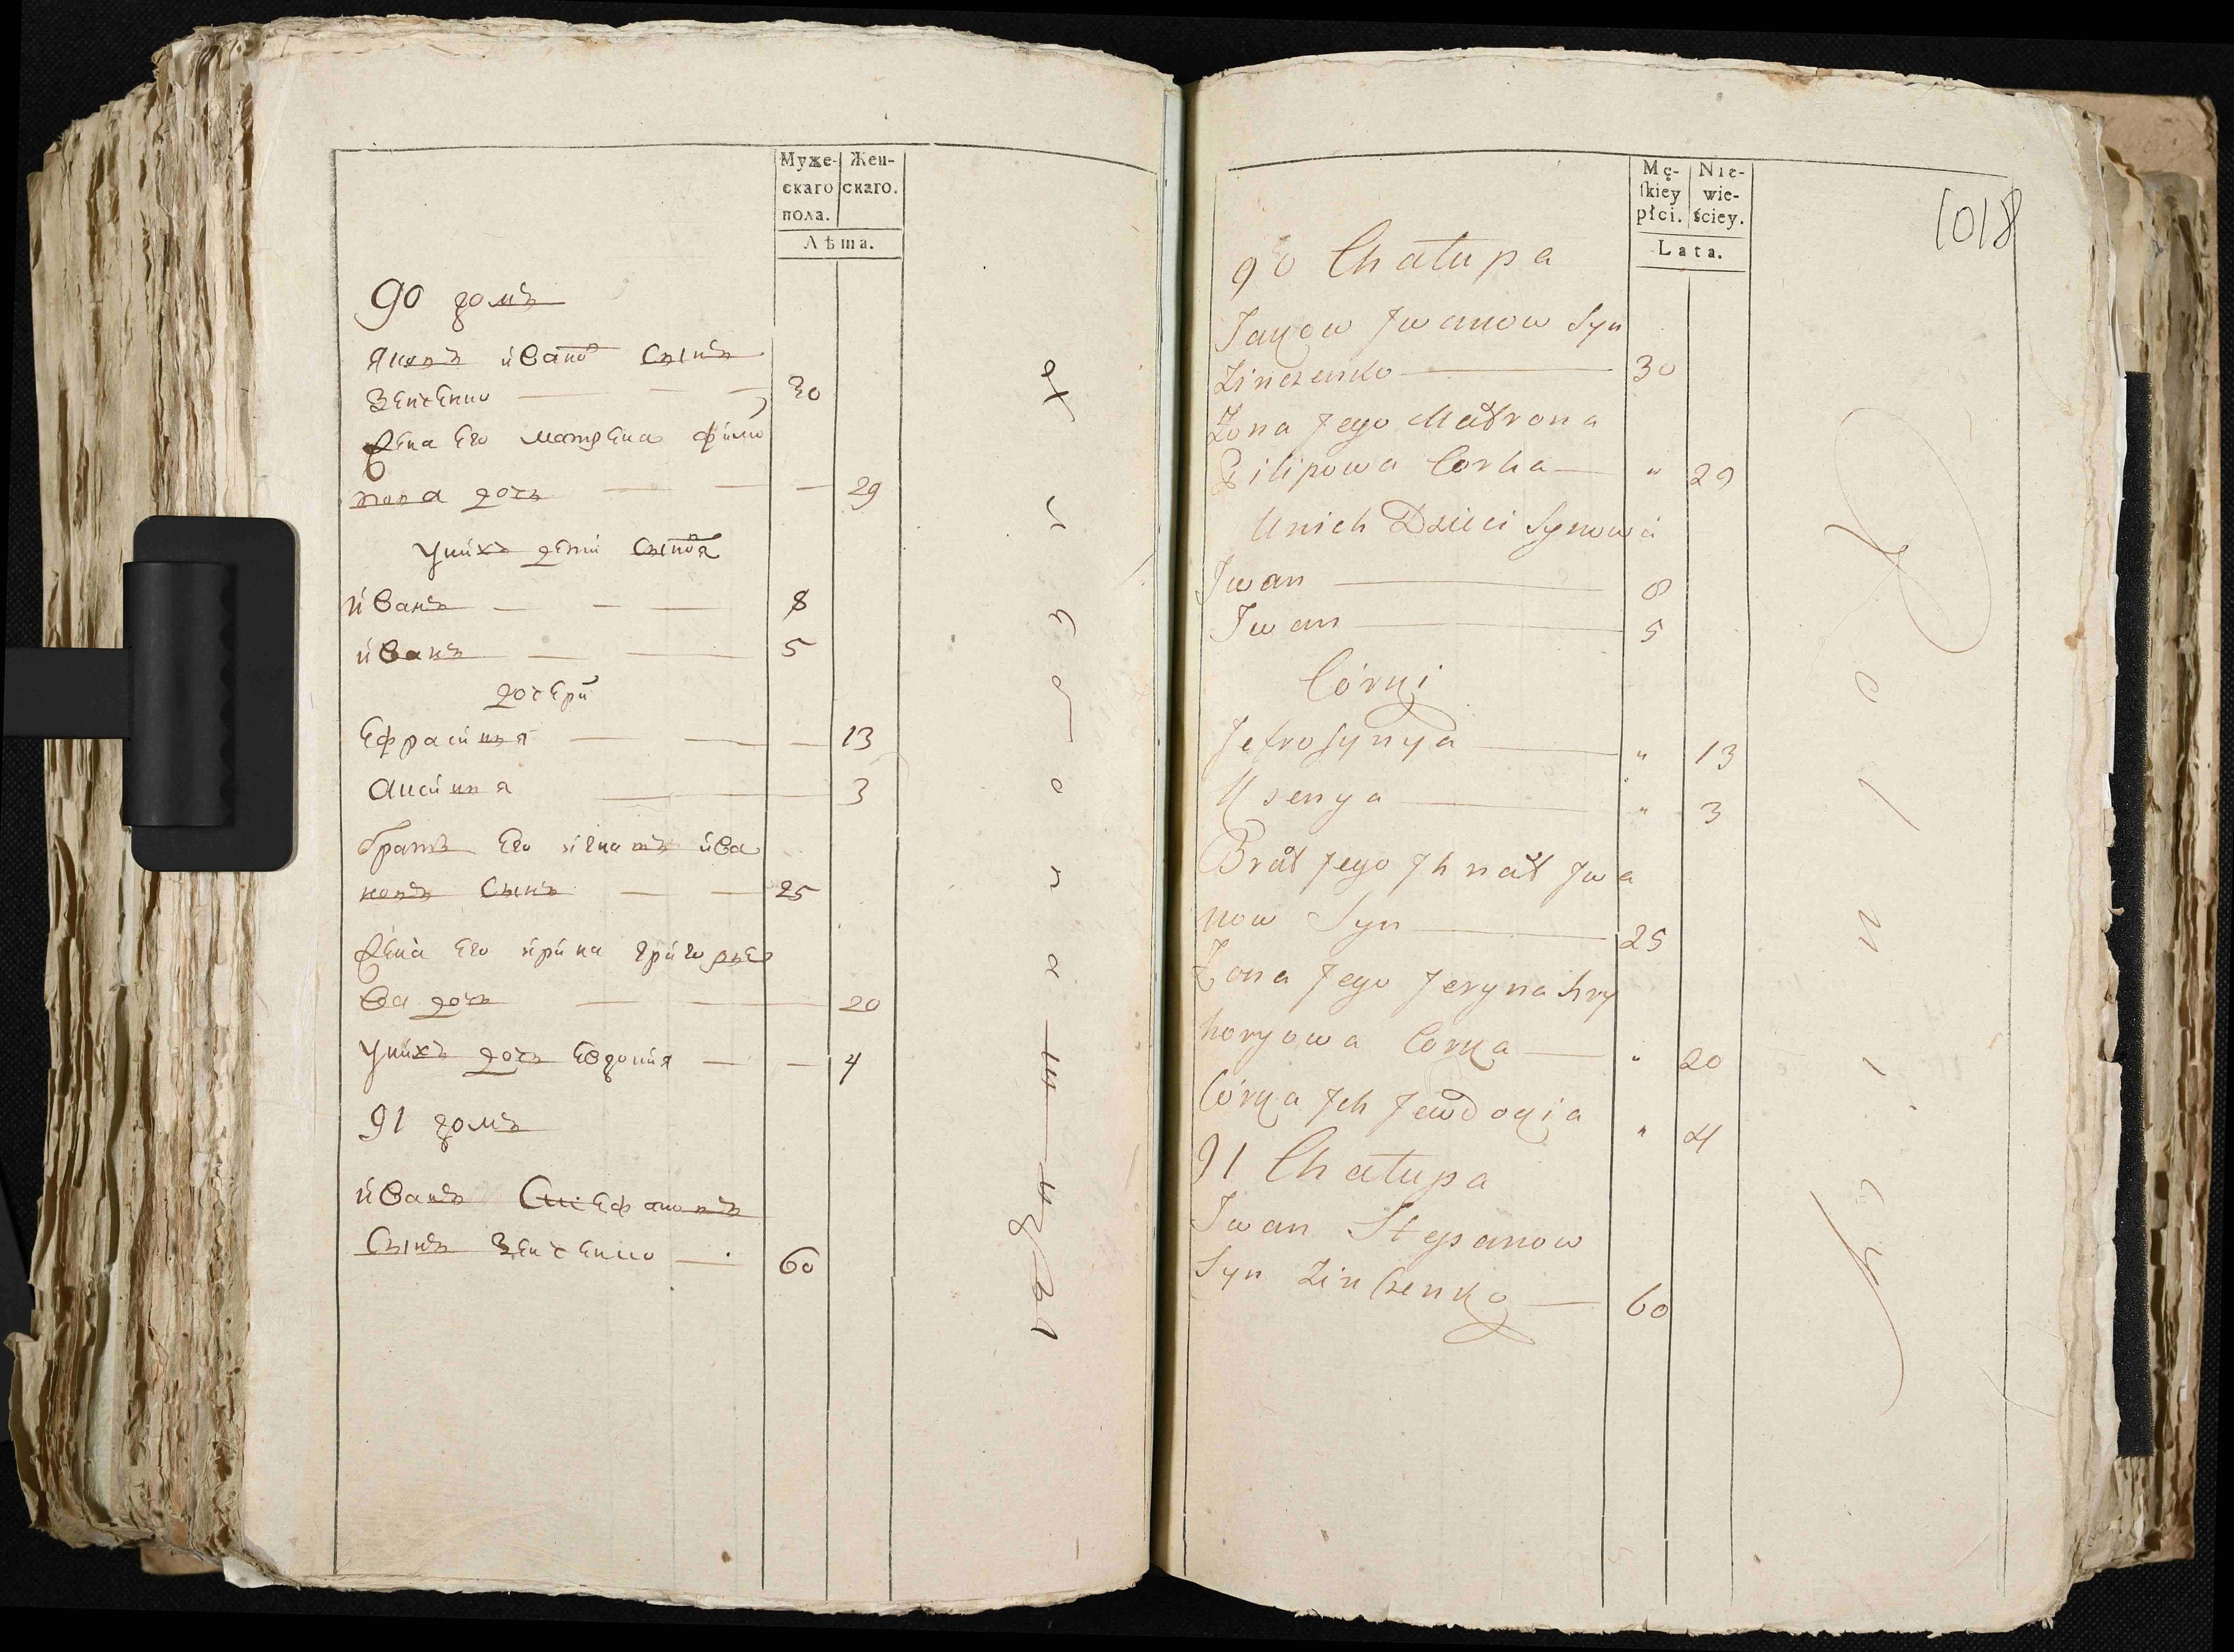 Муже-
скаго
пола.
Жен-
скаго.
Лѣта.
90 домъ
Яковъ иванов сынъ
Зенченко 30
Жена его матрена фили
пова дочь 29
У нихъ дети сыновя
иванъ 8
иванъ 5
дочери
Ефрасинья 13
Аксинья 3
братъ его игнатъ ива
новъ сынъ 25
Жена его ирина григорье
ва дочь 20
У нихъ дочь Евдокия 4
91 домъ
иванъ Стефановъ
сынъ Зенченко 60
Mę-
ſkiey
płci.
Nie-
wie-
ściey.
Lata.
1018
90 Chałupa
Jakow Jwanow Syn
Zinczenko 30
Żona Jego Matrona
Filipowa Corka " 29
Unich Dzieci Synowi
Jwan 8
Jwan 5
Córki
Jefrosynya " 13
Ksenya " 3
Brat Jego Jhnat Jwa
now Syn 25
Żona Jego Jeryna hry
horyowa Corka " 20
Córka Jch Jewdokia " 4
91 Chałupa
Jwan Stepanow
Syn Zinczenko 60